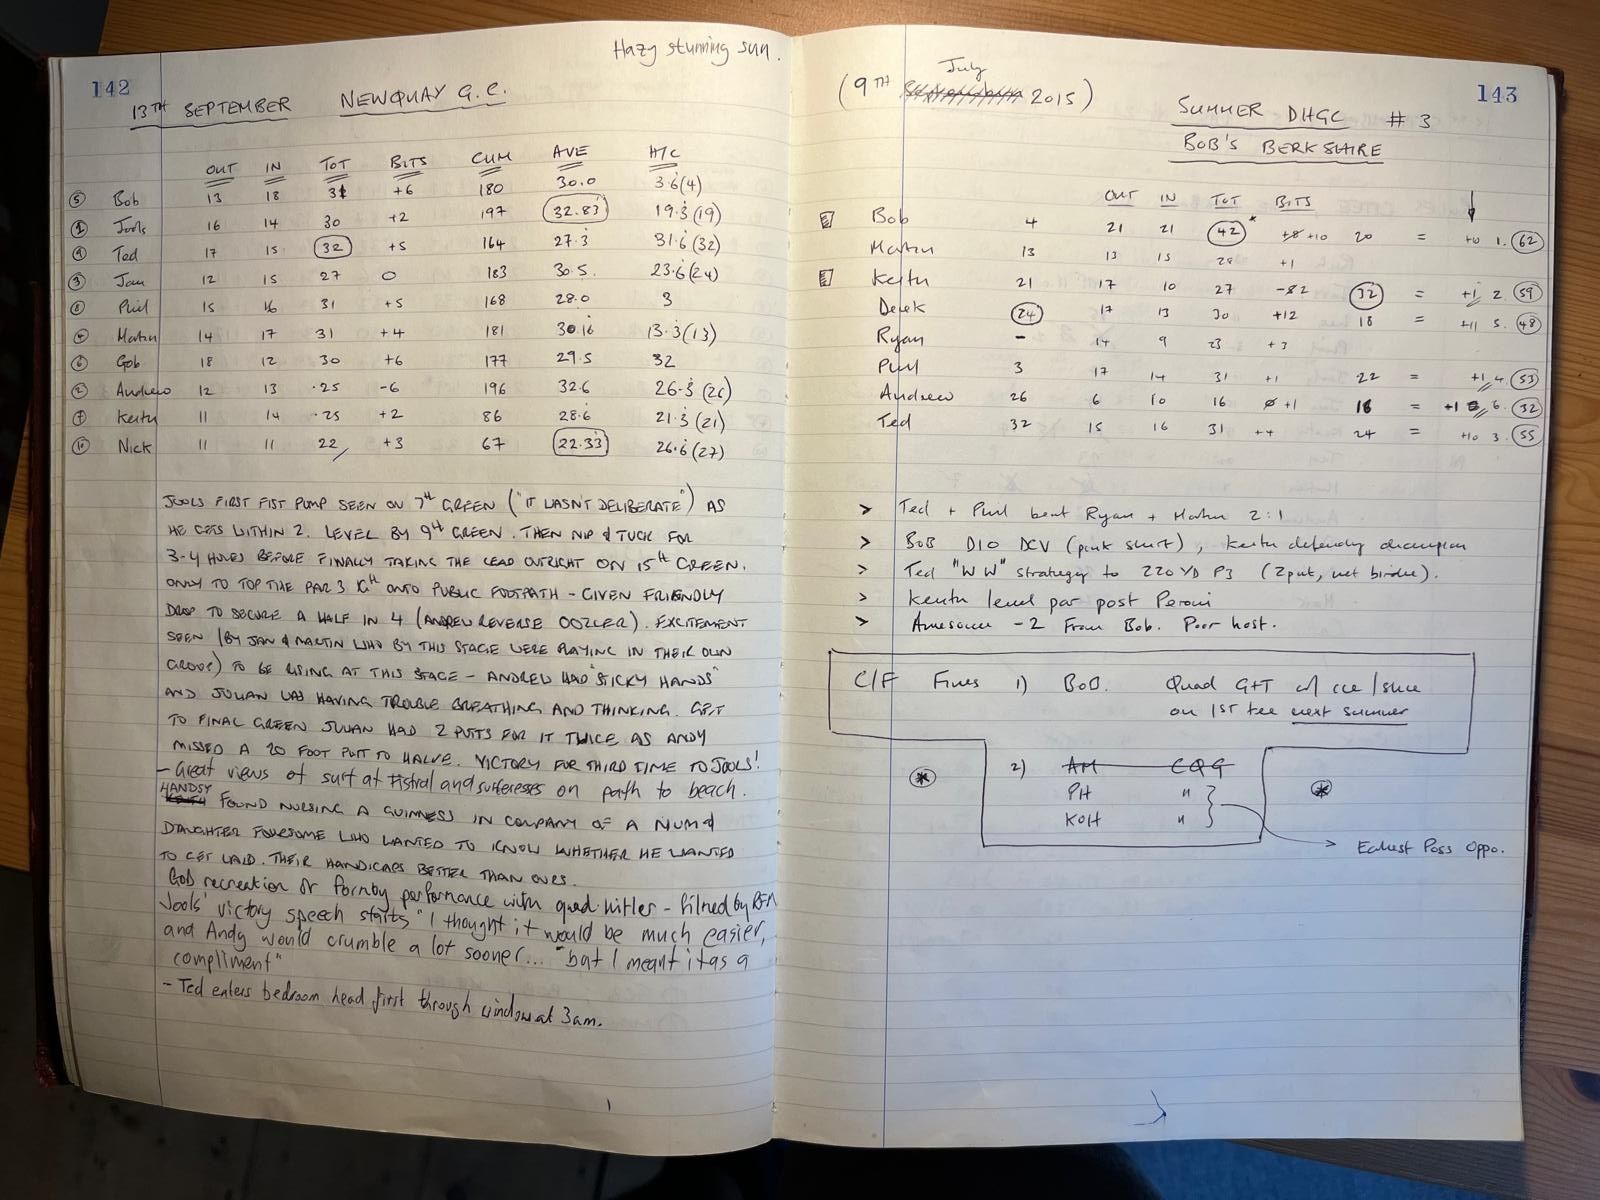 142
Hazy stunning sun.
13TH SEPTEMBER NEWQUAY G.C.
OUT IN TOT BITS CUM AVE H/C
⑤ Bob 13 18 31 +6 180 30.0 3.6(4)
① Jools 16 14 30 +2 197 32.83 19.3(19)
⑨ Ted 17 15 32 +5 164 27.3 31.6(32)
③ Jan 12 15 27 0 183 30.5 23.6(24)
⑧ Phil 15 16 31 +5 168 28.0 3
④ Martin 14 17 31 +4 181 30.16 13.3(13)
⑥ Gob 18 12 30 +6 177 29.5 32
② Andrew 12 13 25 -6 196 32.6 26.3(26)
⑦ Keith 11 14 25 +2 86 28.6 21.3(21)
⑩ Nick 11 11 22 +3 67 22.33 26.6(27)
JOOLS FIRST FIST PUMP SEEN ON 7th GREEN ("IT WASN'T DELIBERATE") AS
HE GETS WITHIN 2. LEVEL BY 9th GREEN. THEN NIP & TUCK FOR
3-4 HOLES BEFORE FINALLY TAKING THE LEAD OUTRIGHT ON 15th GREEN.
ONLY TO TOP THE PAR 3 16th ONTO PUBLIC FOOTPATH - GIVEN FRIENDLY
DROP TO SECURE A HALF IN 4 (ANDREW REVERSE OOZLER). EXCITEMENT
SEEN (BY JAN & MARTIN WHO BY THIS STAGE WERE PLAYING IN THEIR OWN
GROVE) TO BE RISING AT THIS STAGE - ANDREW HAD "STICKY HANDS"
AND JULIAN WAS HAVING TROUBLE BREATHING AND THINKING. GET
TO FINAL GREEN JULIAN HAD 2 PUTTS FOR IT TWICE AS ANDY
MISSED A 20 FOOT PUTT TO HALVE. VICTORY FOR THIRD TIME TO JOOLS!
- Great views of surf at Fistral and surferesses on path to beach.
HANDSY
FOUND NURSING A GUINNESS IN COMPANY OF A MUM &
DAUGHTER FOURSOME WHO WANTED TO KNOW WHETHER HE WANTED
TO GET LAID. THEIR HANDICAPS BETTER THAN OURS.
Gob recreation of Formby performance with quad-hitler - filmed by
Jools' victory speech starts "I thought it would be much easier,
and Andy would crumble a lot sooner... "but I meant it as a
compliment"
- Ted enters bedroom head first through window at 3am.
143
July
(9TH 2015)
SUMMER DHGC #3
BOB'S BERKSHIRE
OUT IN TOT BITS
Bob 4 21 21 42* +10 20 = +0 1. 62
Martin 13 13 15 28 +1
Keith 21 17 10 27 32 = +1 2 59
Derek 24 17 13 30 +12 18 = +11 5. 48
Ryan - 14 9 23 +3
Phil 3 17 14 31 +1 22 = +1 4. 53
Andrew 26 6 10 16 +1 16 = +1 6. 32
Ted 32 15 16 31 +4 24 = +10 3. 55
> Ted + Phil beat Ryan + Martin 2:1
> BOB DIO DCV (pink shirt), Keith defending champion
> Ted "WW" strategy to 220 YD P3 (2put, net birdie).
> Keith level par post Peroni
> Awesome -2 From Bob. Poor host.
C/F Fines 1) BOB. Quad G+T w/ ice/slice
on 1ST tee next summer
* 2) AM CQG *
PH "
KOH "
→ Earliest Poss Oppo.